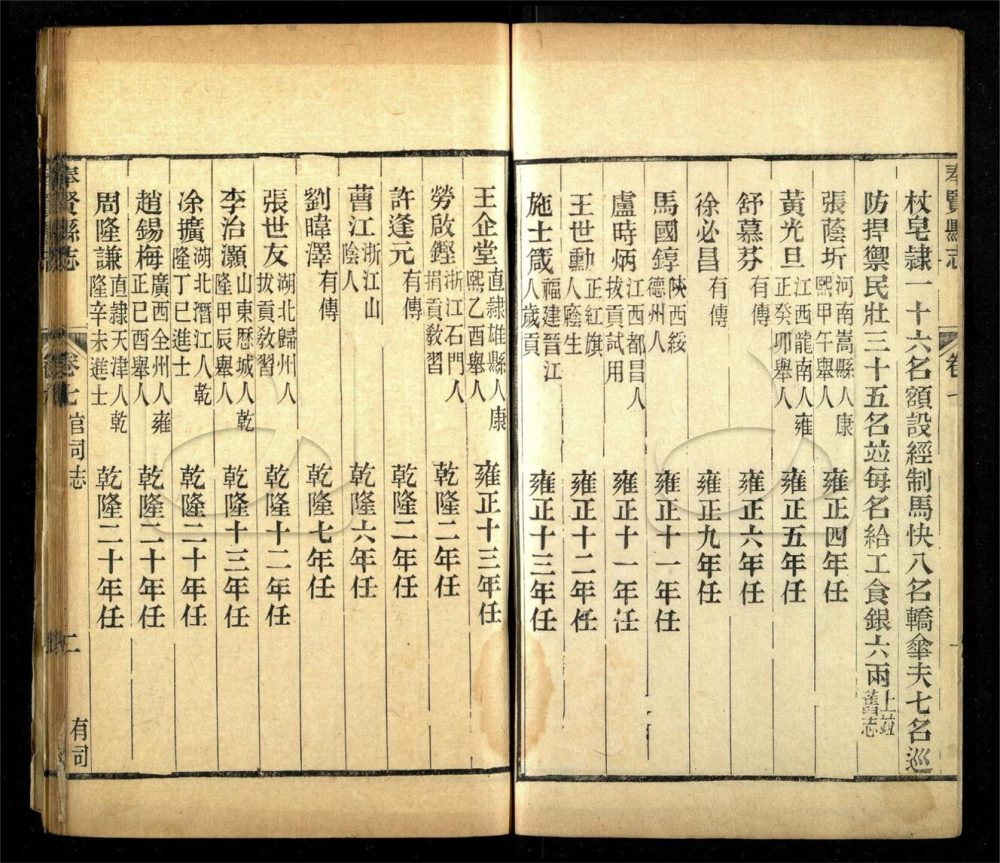 杖皂隸一十六名額設經制馬快八名轎傘夫七名巡
防捍禦民壯三十五名竝每名給工食銀六兩上竝舊志
張蔭圻河南嵩縣人康熙甲午舉人 雍正四年任
黃光旦江西龍南人雍正癸卯舉人 雍正五年任
舒慕芬有傳 雍正六年任
徐必昌有傳 雍正九年任
馬國錞陜西綏德州人 雍正十一年任
盧時炳江西都昌人拔貢試用 雍正十一年任
王世勳正紅旗人廕生 雍正十二年任
施士箴福建晉江人歲貢 雍正十三年任
王企堂直隸雄縣人康熙乙酉舉人 雍正十三年任
勞啟鏗浙江石門人捐貢敎習 乾隆二年任
許逢元有傳 乾隆二年任
曹江浙江山陰人 乾隆六年任
劉暐澤有傳 乾隆七年任
張世友湖北歸州人拔貢敎習 乾隆十二年任
李治灝山東歷城人乾隆甲辰舉人 乾隆十三年任
凃擴湖北潛江人乾隆丁巳進士 乾隆二十年任
趙錫梅廣西全州人雍正己酉舉人 乾隆二十年任
周隆謙直隸天津人乾隆辛未進士 乾隆二十年任
奉賢縣志 卷七 官司志 二 有司